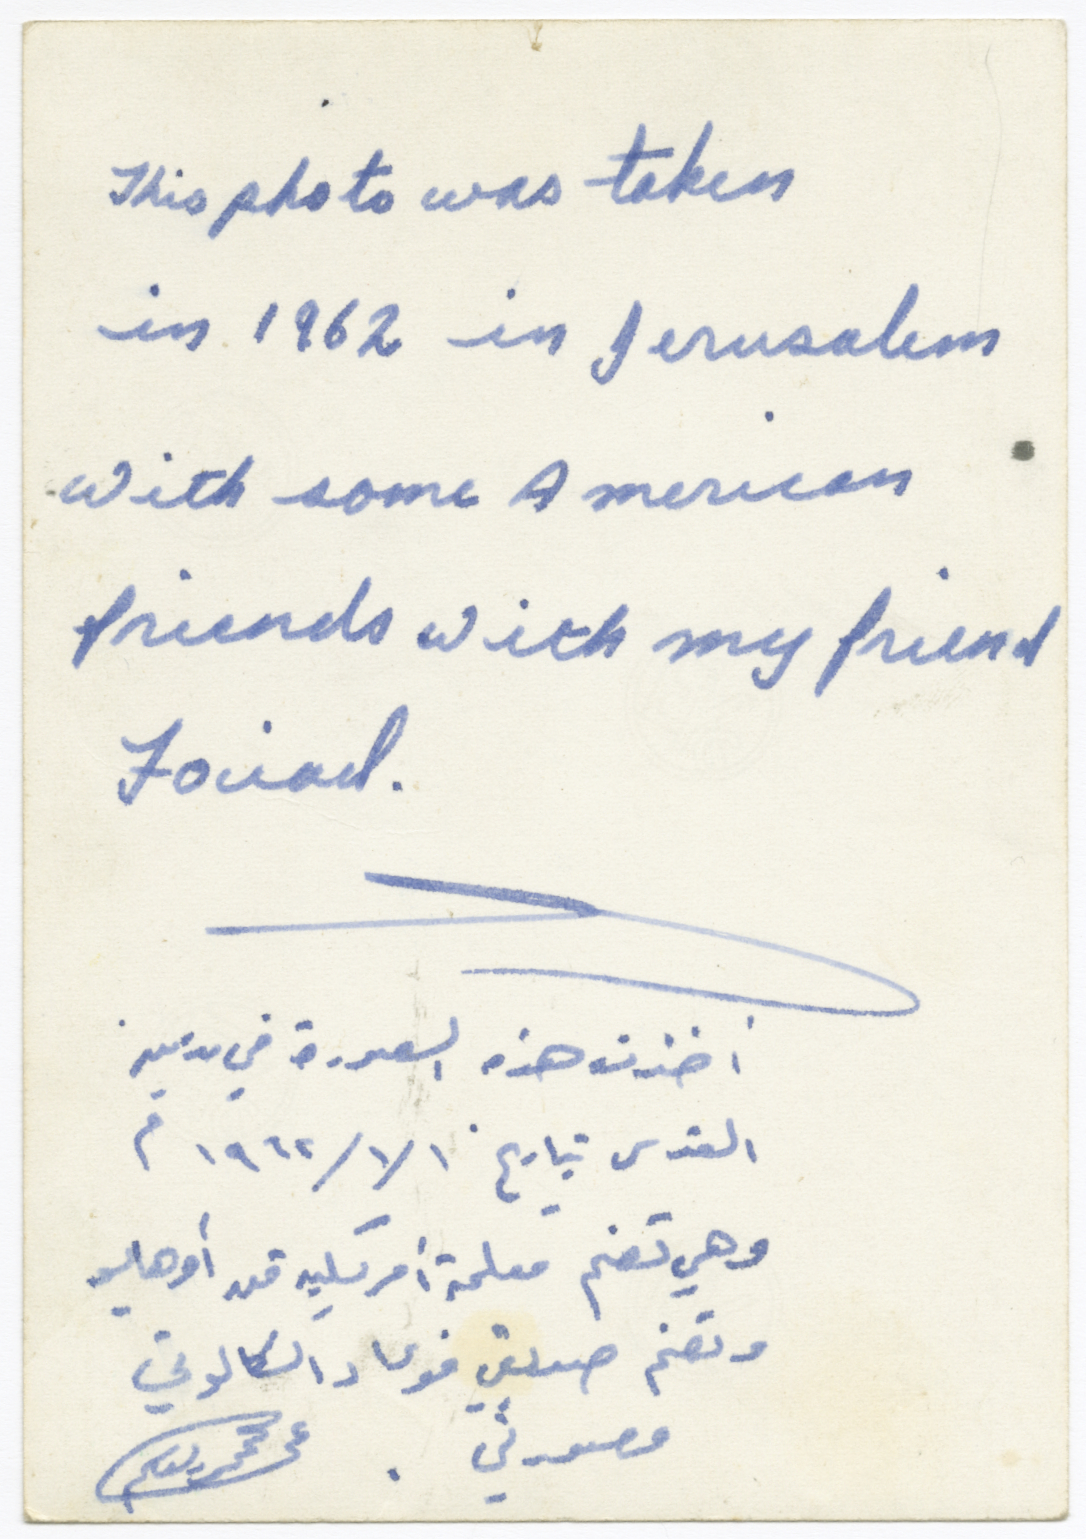 This photo was taken
in 1962 in Jerusalem
with some American
friends with my friend
Fouad.
أخذت هذه الصورة في مدينة
القدس بتاريخ ١/١/١٩٦٢ م
وهي تضم معلمة أمريكية من أوهايو
وتضم صديقي فؤاد
وصورتي